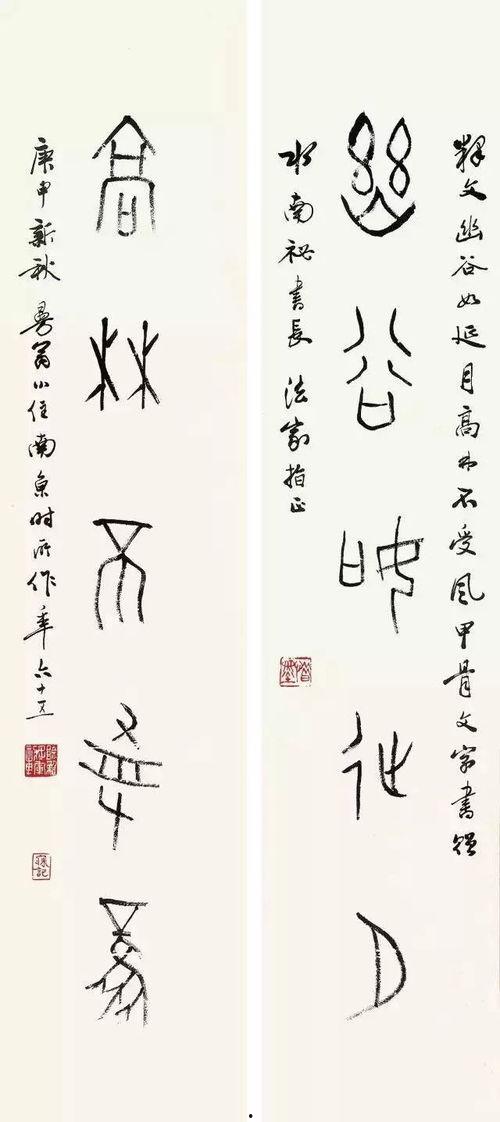 釋文幽谷如延月高林不受風甲骨文字書贈
幽谷如延月
水南祕書長 法家指正
高林不受風
庚申新秋曼翁小住南京時所作年六十五